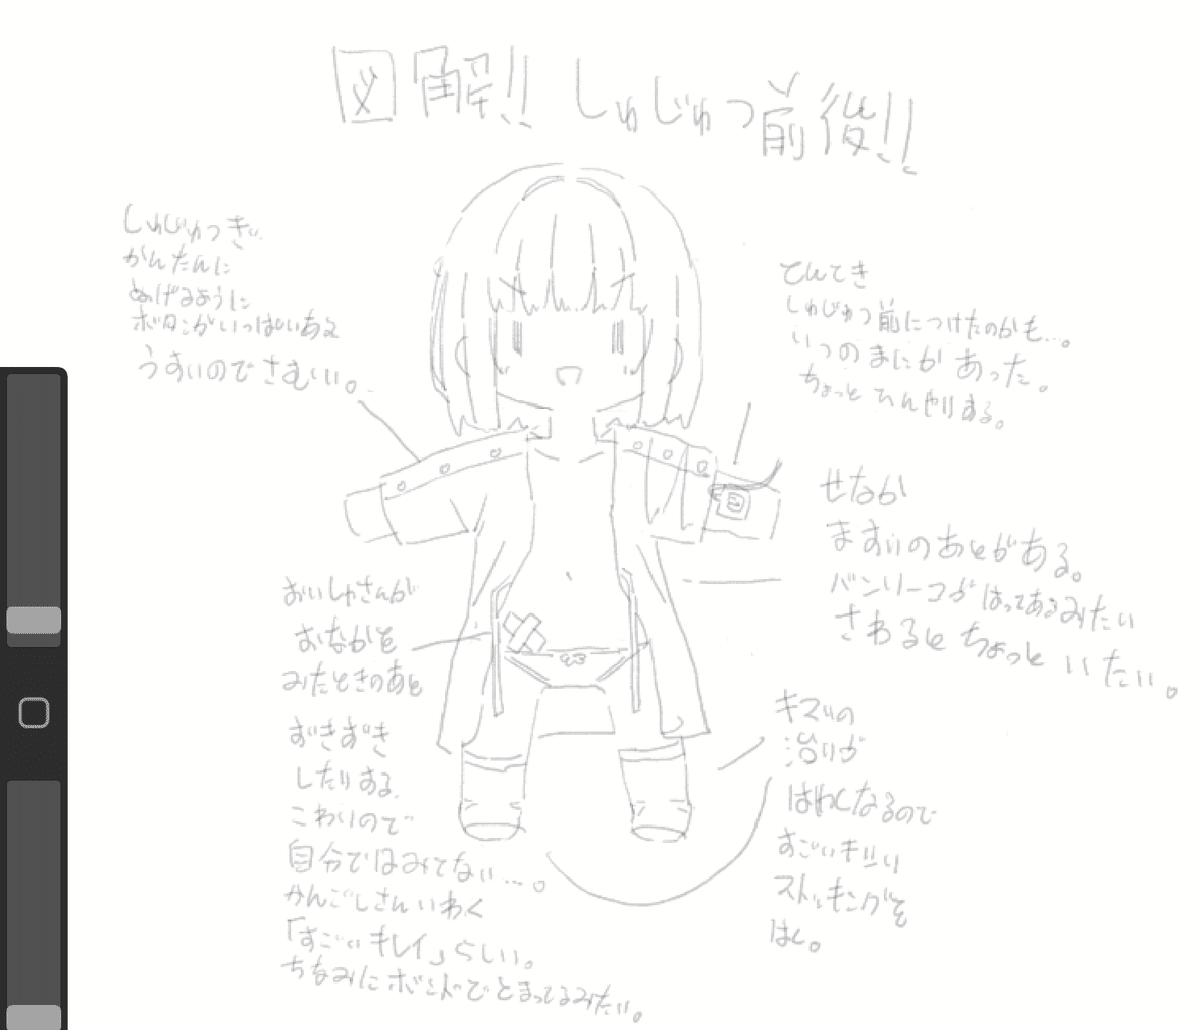 図解!! しゅじゅつ前後!!
しゅじゅつぎ。
かんたんに
ぬげるように
ボタンがいっぱいある
うすいのでさむい。
てんてき
しゅじゅつ前につけたのかも…。
いつのまにかあった。
ちょっとひんやりする。
せなか
ますいのあとがある。
バンソーコがはってあるみたい
さわるとちょっといたい。
おいしゃさんが
おなかを
みたときのあと
ずきずき
したりする
こわいので
自分ではみてない…。
かんごしさんいわく
「すごいキレイ」らしい。
ちなみにボンドでとまってるみたい。
キズの
治りが
はやくなるので
すごいキツい
ストッキングを
はく。